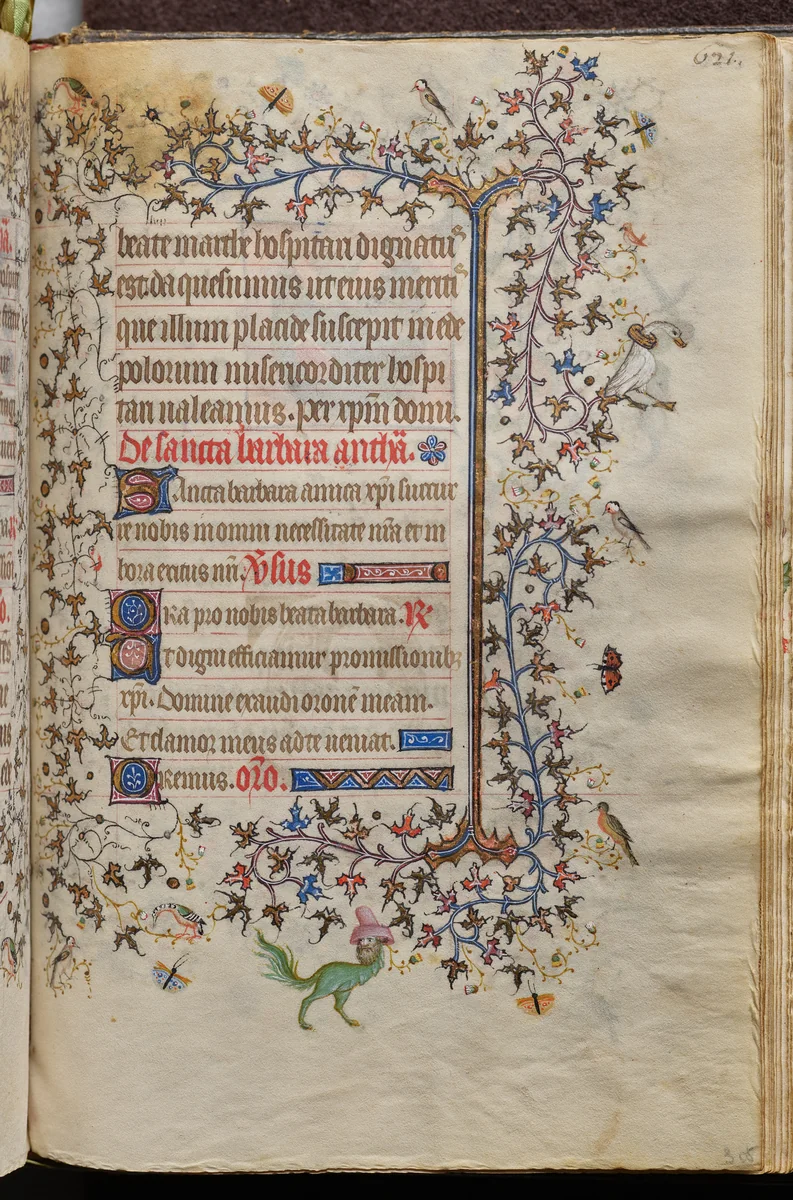 621.
beate marthe hospitari dignatus
est. da quesumus ut eius meritis
que illum placide suscepit in ede
polorum misericorditer hospi
tari ualeamus. per xp̄m domī.
De sancta barbara anthā.
Sancta barbara amica xp̄i succur
re nobis in omni necessitate nr̄a et in
hora exitus nr̄i. V̄sus
Ora pro nobis beata barbara. R̄
Et digni efficiamur promissionibꝫ
xp̄i. Domine exaudi oronē meam.
Et clamor meus ad te ueniat.
Oremus. or̄o.